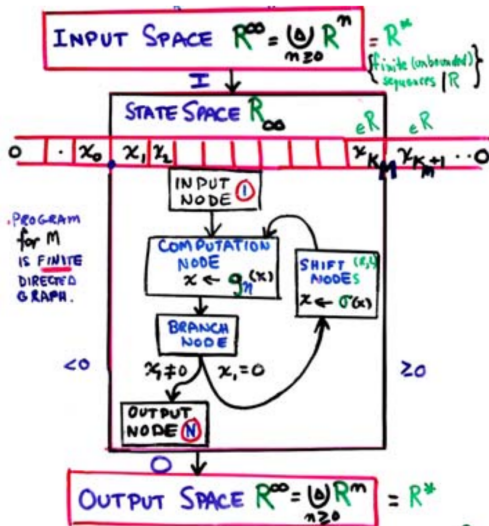 INPUT SPACE R^∞ = ⨃_{n≥0} R^n = R*
{finite (unbounded) sequences / R}
I
STATE SPACE R_∞
∈R ∈R
0 · x₀ x₁ x₂ x_{K_M} x_{K_M+1} ··0
INPUT
NODE 1
.PROGRAM
for M
IS FINITE
DIRECTED
GRAPH.
COMPUTATION
NODE
x ← g_n(x)
SHIFT (R,L)
NODES
x ← σ(x)
BRANCH
NODE
<0 x₁≠0 x₁=0 ≥0
OUTPUT
NODE N
O
OUTPUT SPACE R^∞ = ⨃_{n≥0} R^n = R*